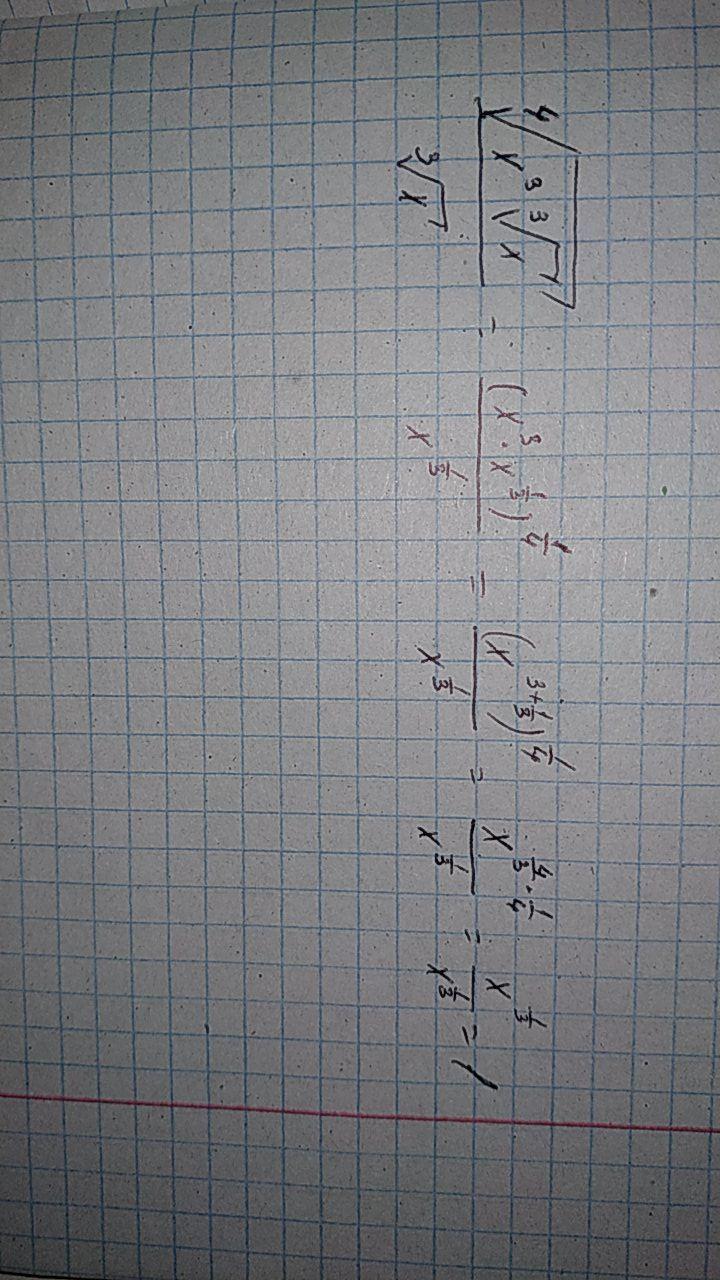 \frac{\sqrt[4]{x^3 \sqrt[3]{x}}}{\sqrt[3]{x}} = \frac{(x^3 \cdot x^{\frac{1}{3}})^{\frac{1}{4}}}{x^{\frac{1}{3}}} = \frac{(x^{3+\frac{1}{3}})^{\frac{1}{4}}}{x^{\frac{1}{3}}} = \frac{x^{\frac{4}{3} \cdot \frac{1}{4}}}{x^{\frac{1}{3}}} = \frac{x^{\frac{1}{3}}}{x^{\frac{1}{3}}} = 1